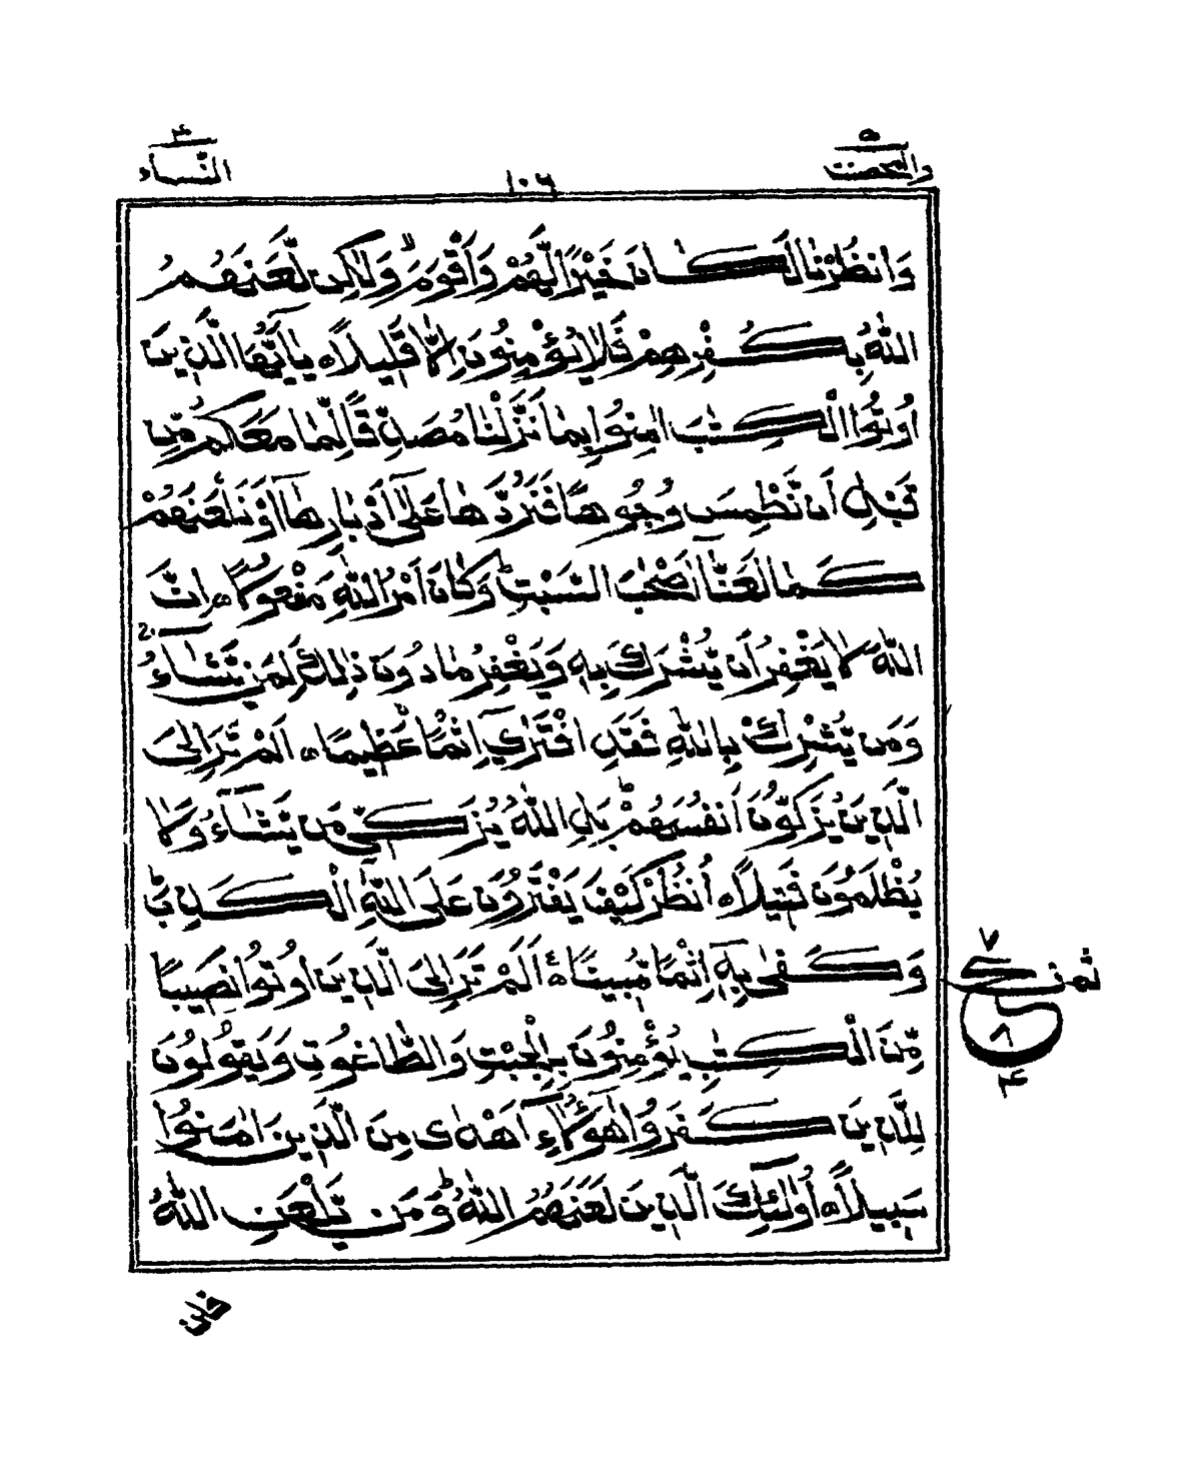 ٥
والمحصنت
١٠٦
٤
النِّسآء
وَانظُرْنَا لَكَانَ خَيْرًا لَّهُمْ وَأَقْوَمَ ۙ وَلَٰكِن لَّعَنَهُمُ
اللَّهُ بِكُفْرِهِمْ فَلَا يُؤْمِنُونَ إِلَّا قَلِيلًا ۝ يَا أَيُّهَا الَّذِينَ
أُوتُوا الْكِتَٰبَ اٰمِنُوا بِمَا نَزَّلْنَا مُصَدِّقًا لِّمَا مَعَكُم مِّن
قَبْلِ أَن نَّطْمِسَ وُجُوهًا فَنَرُدَّهَا عَلَىٰ أَدْبَارِهَا أَوْ نَلْعَنَهُمْ
كَمَا لَعَنَّا أَصْحَٰبَ السَّبْتِ ۚ وَكَانَ أَمْرُ اللَّهِ مَفْعُولًا ۝ إِنَّ
اللَّهَ لَا يَغْفِرُ أَن يُشْرَكَ بِهِ وَيَغْفِرُ مَا دُونَ ذَٰلِكَ لِمَن يَّشَآءُ
وَمَن يُّشْرِكْ بِاللَّهِ فَقَدِ افْتَرَىٰ إِثْمًا عَظِيمًا ۝ أَلَمْ تَرَ إِلَى
الَّذِينَ يُزَكُّونَ أَنفُسَهُمْ ۚ بَلِ اللَّهُ يُزَكِّي مَن يَّشَآءُ وَلَا
يُظْلَمُونَ فَتِيلًا ۝ اُنظُرْ كَيْفَ يَفْتَرُونَ عَلَى اللَّهِ الْكَذِبَ ۖ
وَكَفَىٰ بِهِ إِثْمًا مُّبِينًا ۝ أَلَمْ تَرَ إِلَى الَّذِينَ أُوتُوا نَصِيبًا
مِّنَ الْكِتَٰبِ يُؤْمِنُونَ بِالْجِبْتِ وَالطَّاغُوتِ وَيَقُولُونَ
لِلَّذِينَ كَفَرُوا هَٰؤُلَآءِ أَهْدَىٰ مِنَ الَّذِينَ اٰمَنُوا
سَبِيلًا ۝ أُولَٰئِكَ الَّذِينَ لَعَنَهُمُ اللَّهُ ۖ وَمَن يَّلْعَنِ اللَّهُ
٧
ع
ثمن
٨
٤
فلن